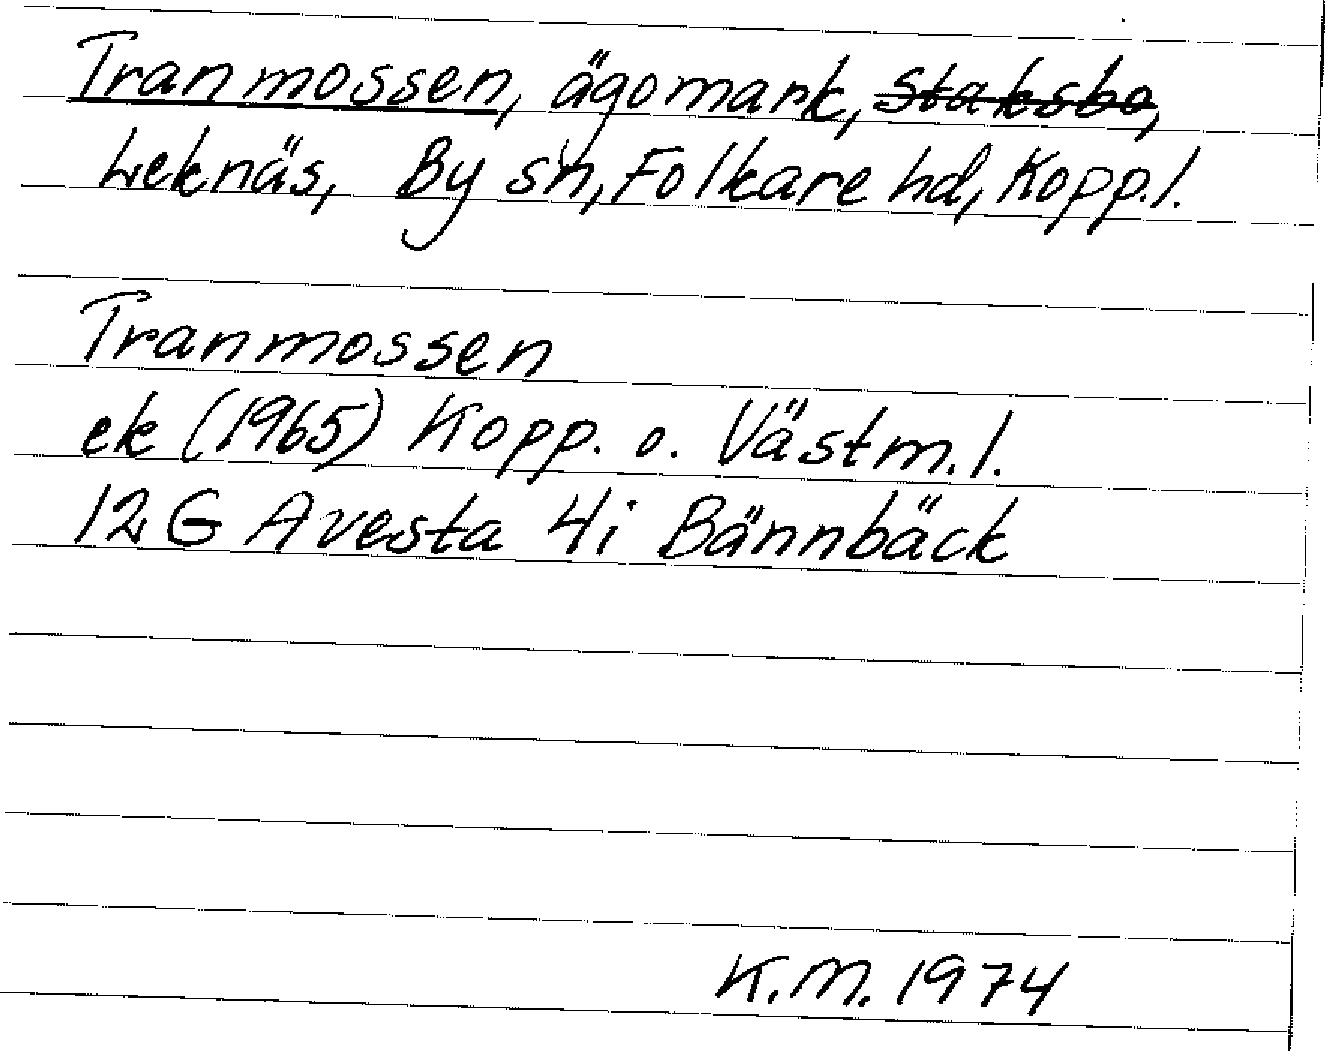 Tranmossen, ägomark, Staksbo,
Leknäs, By sn, Folkare hd, Kopp.l.
Tranmossen
ek (1965) Kopp. o. Västm.l.
12 G Avesta 4i Bännbäck
K.M. 1974